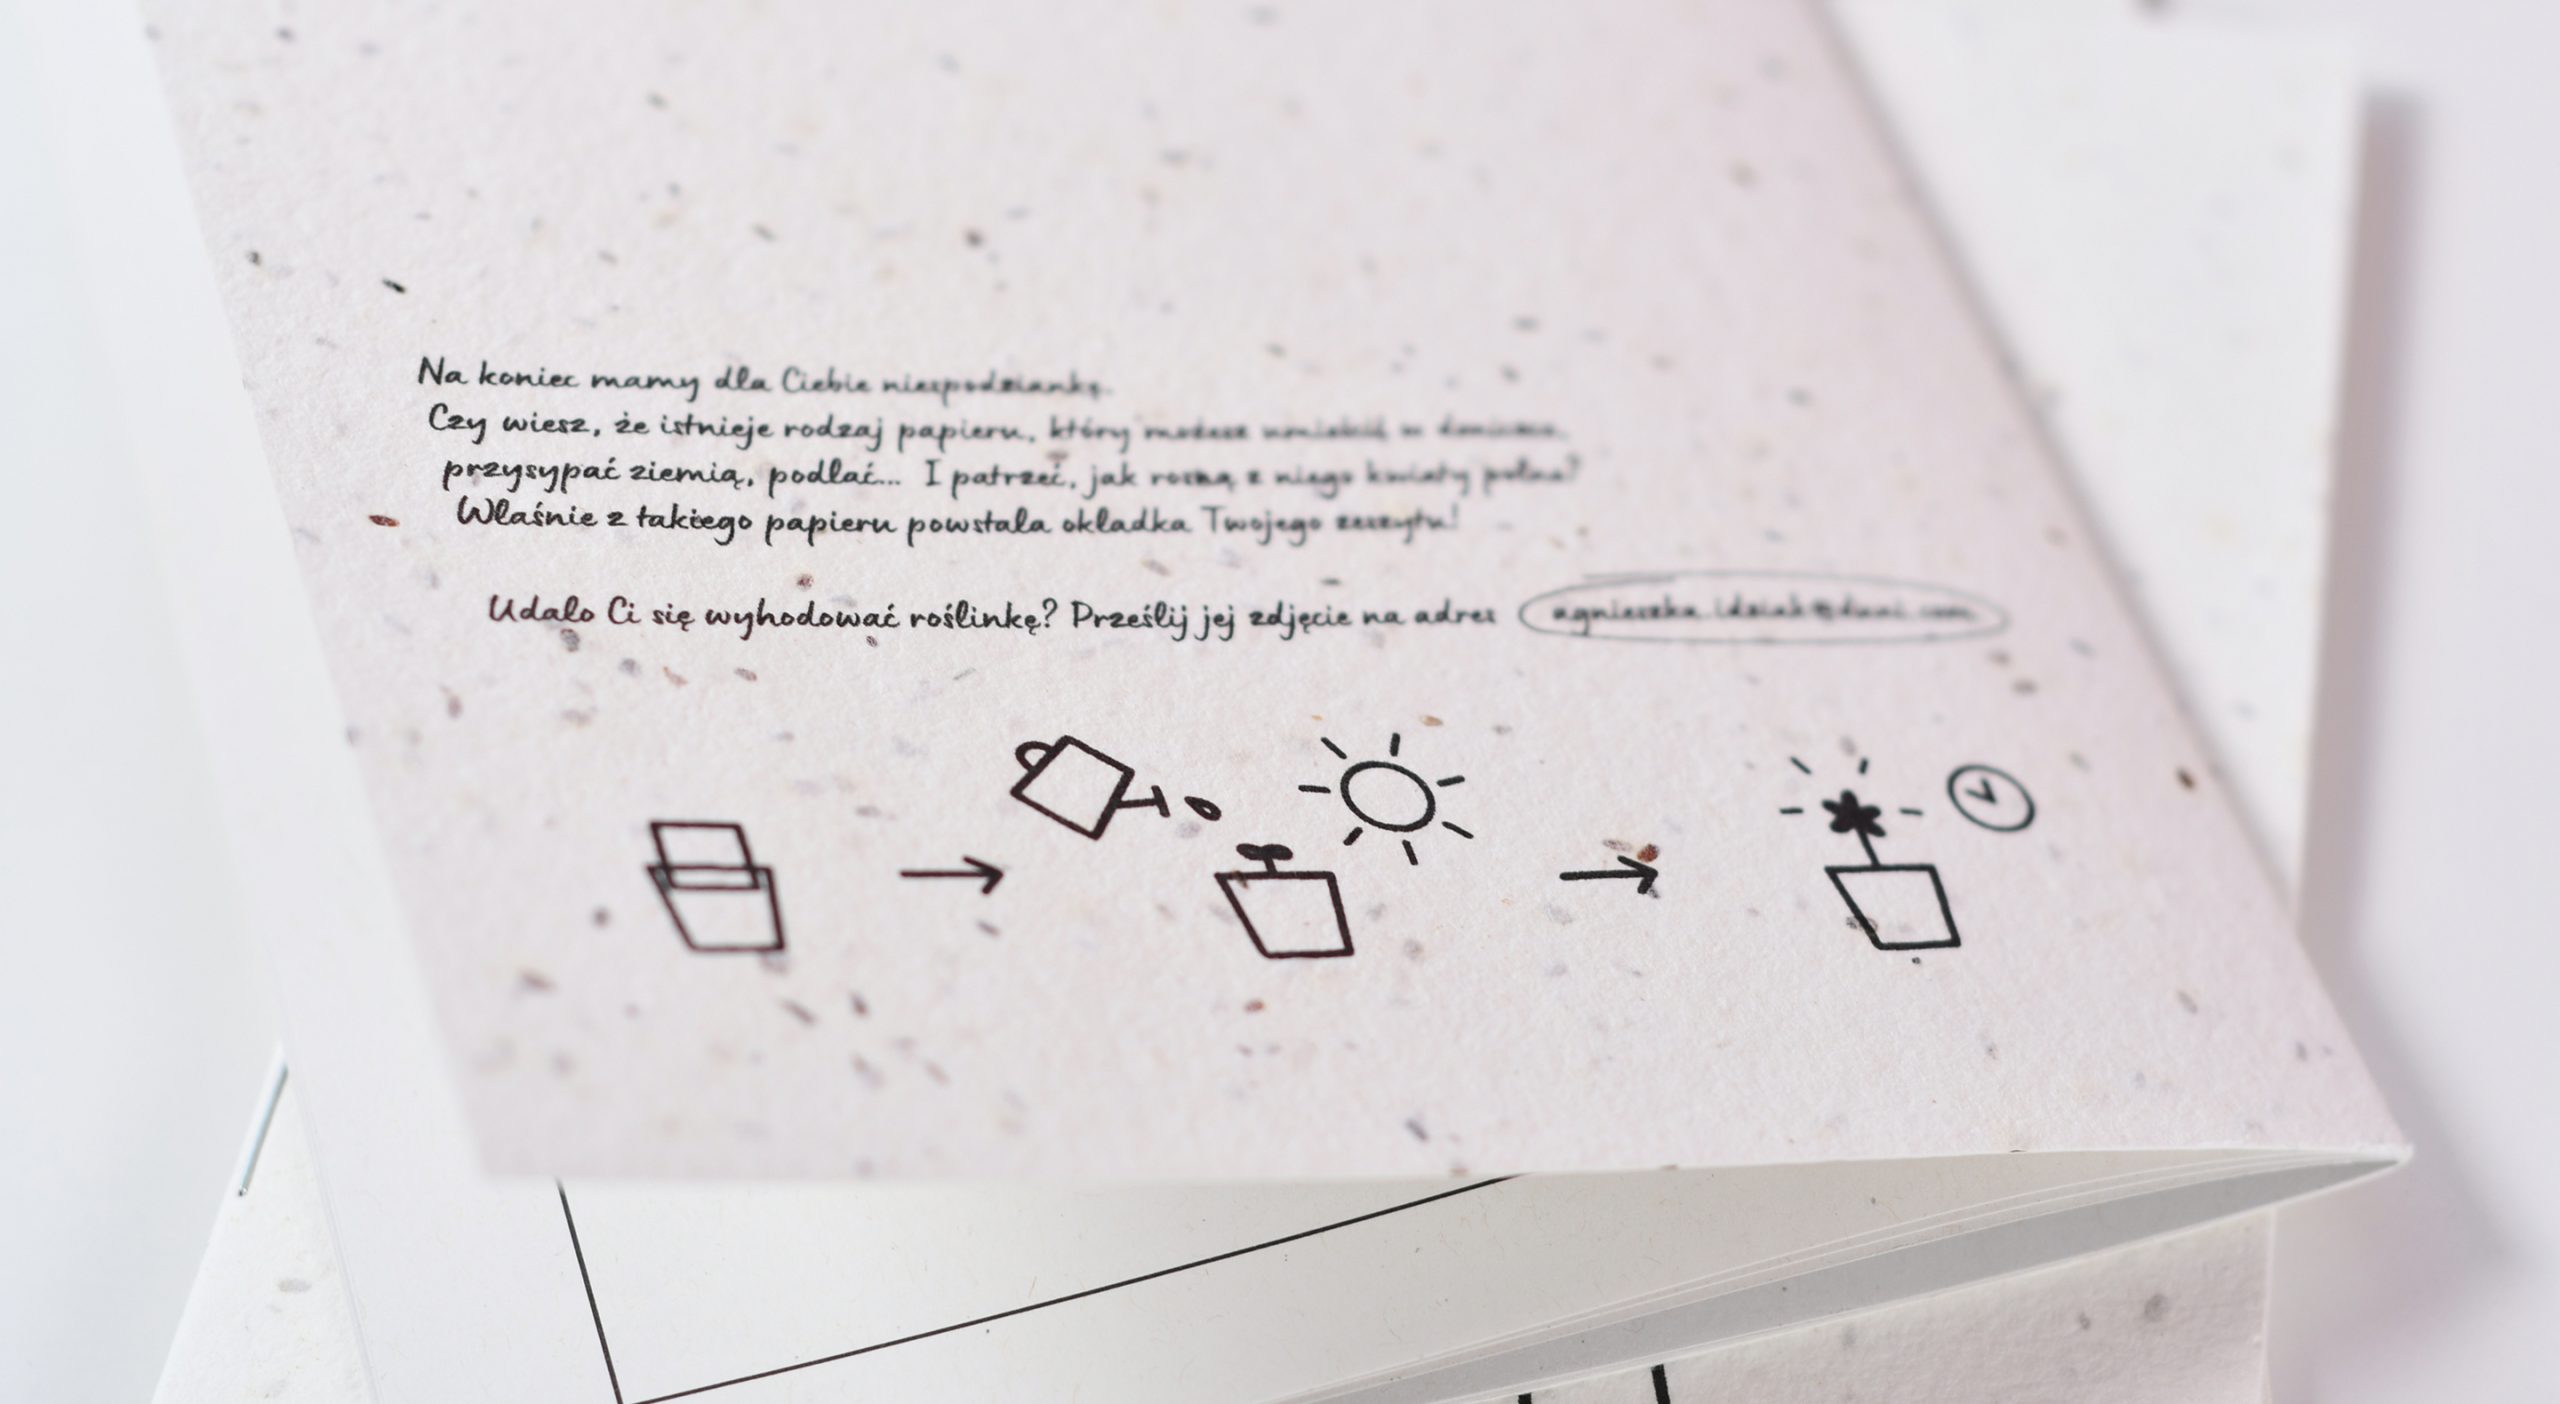 Na koniec mamy dla Ciebie niespodziankę.
Czy wiesz, że istnieje rodzaj papieru, który możesz umieścić w doniczce,
przysypać ziemią, podlać... I patrzeć, jak rosną z niego kwiaty polne?
Właśnie z takiego papieru powstała okładka Twojego zeszytu!
Udało Ci się wyhodować roślinkę? Prześlij jej zdjęcie na adres